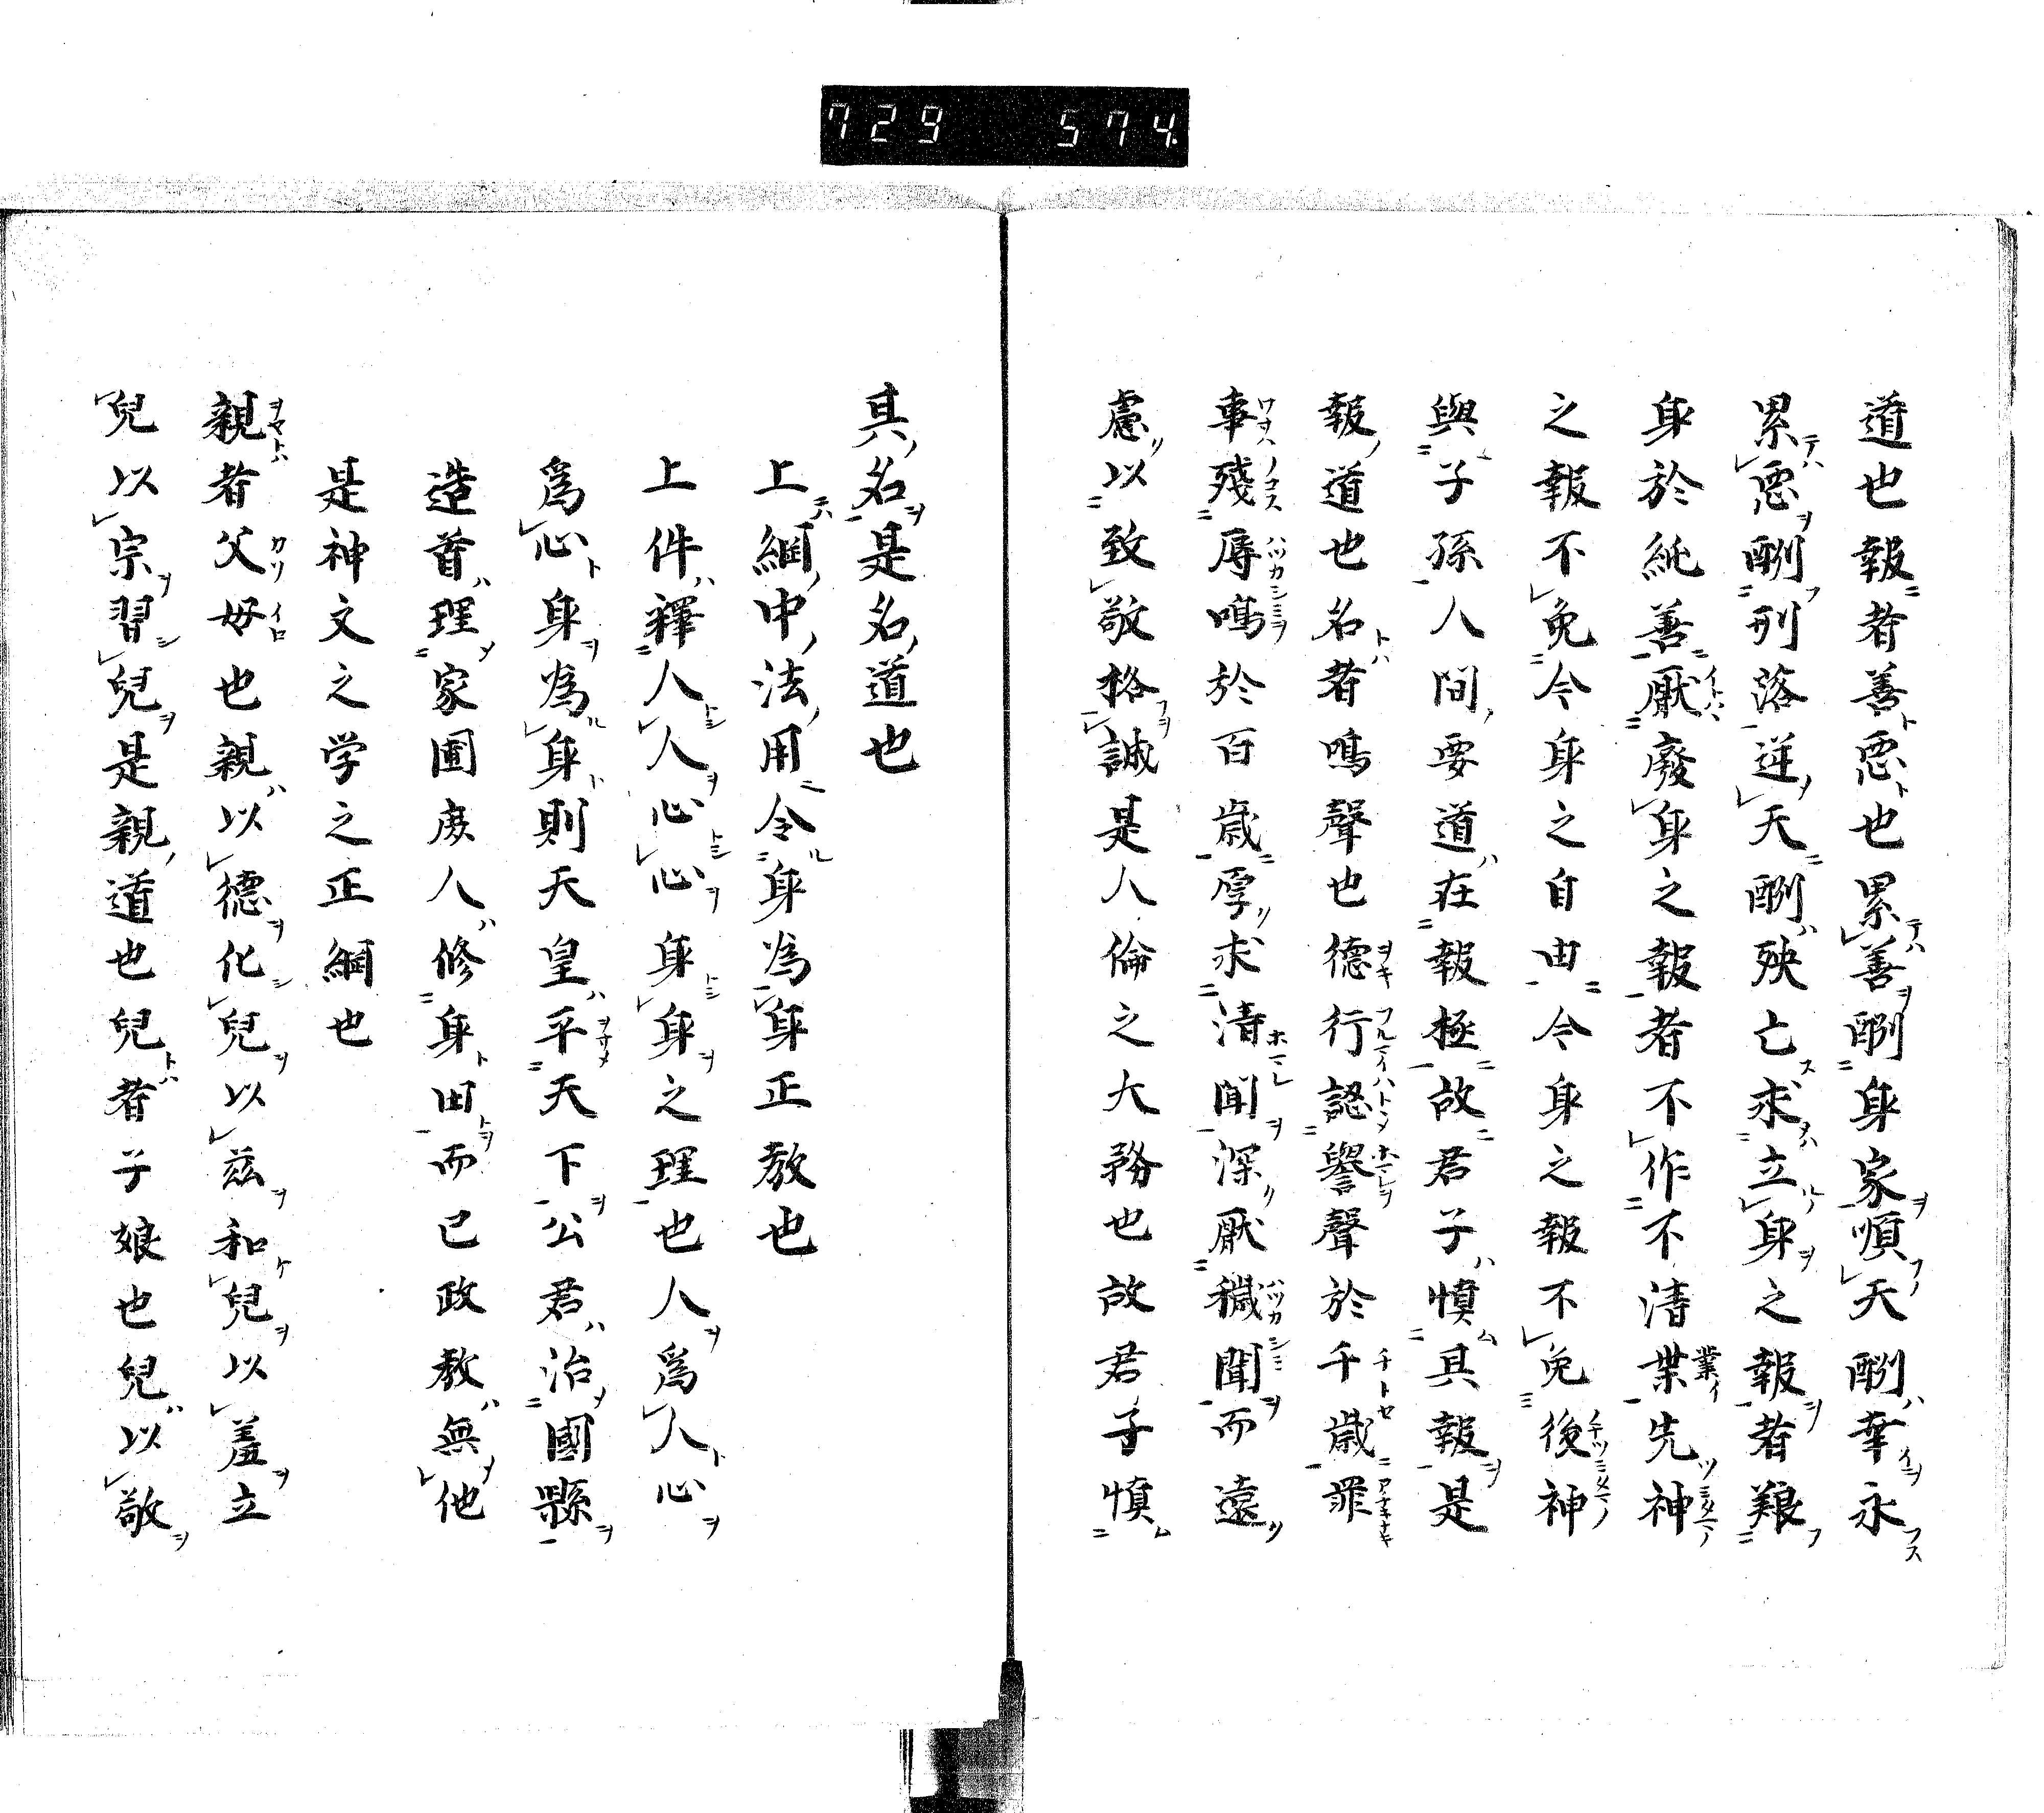 729 574.
道也報者善悪也累善酬身家順天酬幸永
累悪酬刑落逆天酬殃亡求立身之報者艱
身於純善厭廢身之報者不作不清業先神
之報不免令身之自由令身之報不免後神
與子孫人間要道在報極故君子慎其報是
報道也名者鳴聲也德行認譽聲於千歳罪
事殘辱鳴於百歳厚求清聞深厭穢聞而遠
慮以致敬格誠是人倫之大務也故君子慎
其名是名道也
上綱中法用令身為身正教也
上件釋人人心心身身之理也人爲人心
爲心身為身則天皇平天下公君治國縣
造首理家圃庻人修身田而已政教無他
是神文之学之正綱也
親者父母也親以德化兒以兹和兒以羞立
兒以宗習兒是親道也兒者子娘也兒以敬